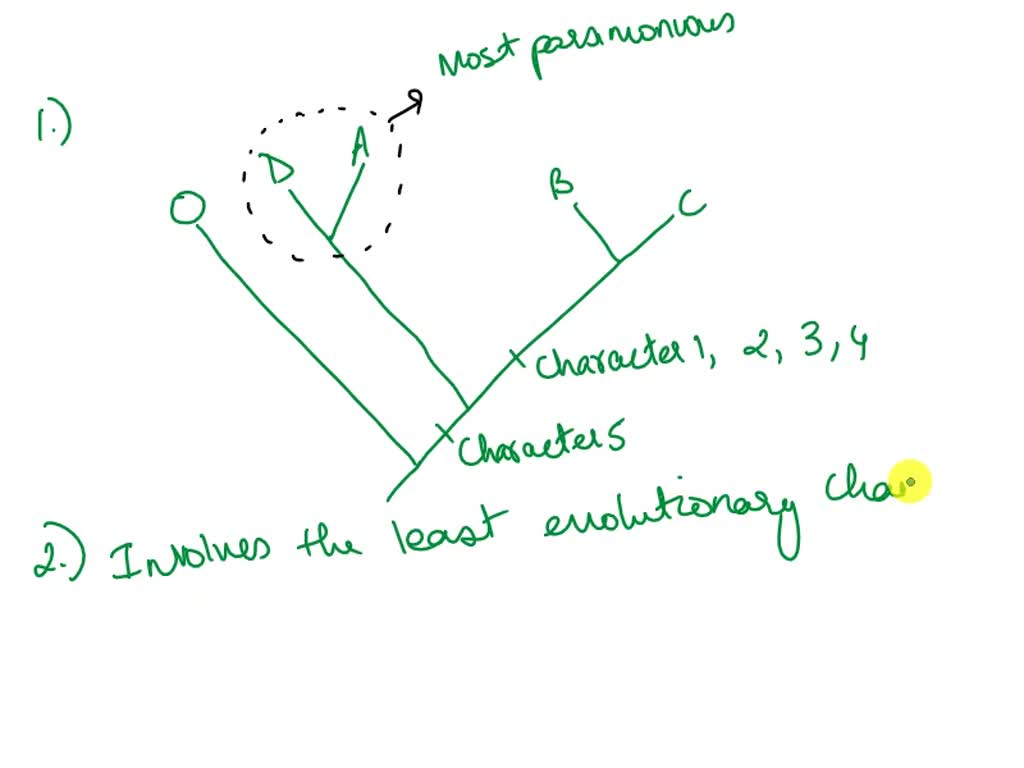 Most parsimonious
1.)
D A
O
B
C
Character 1, 2, 3, 4
Character 5
2.) Involves the least evolutionary cha